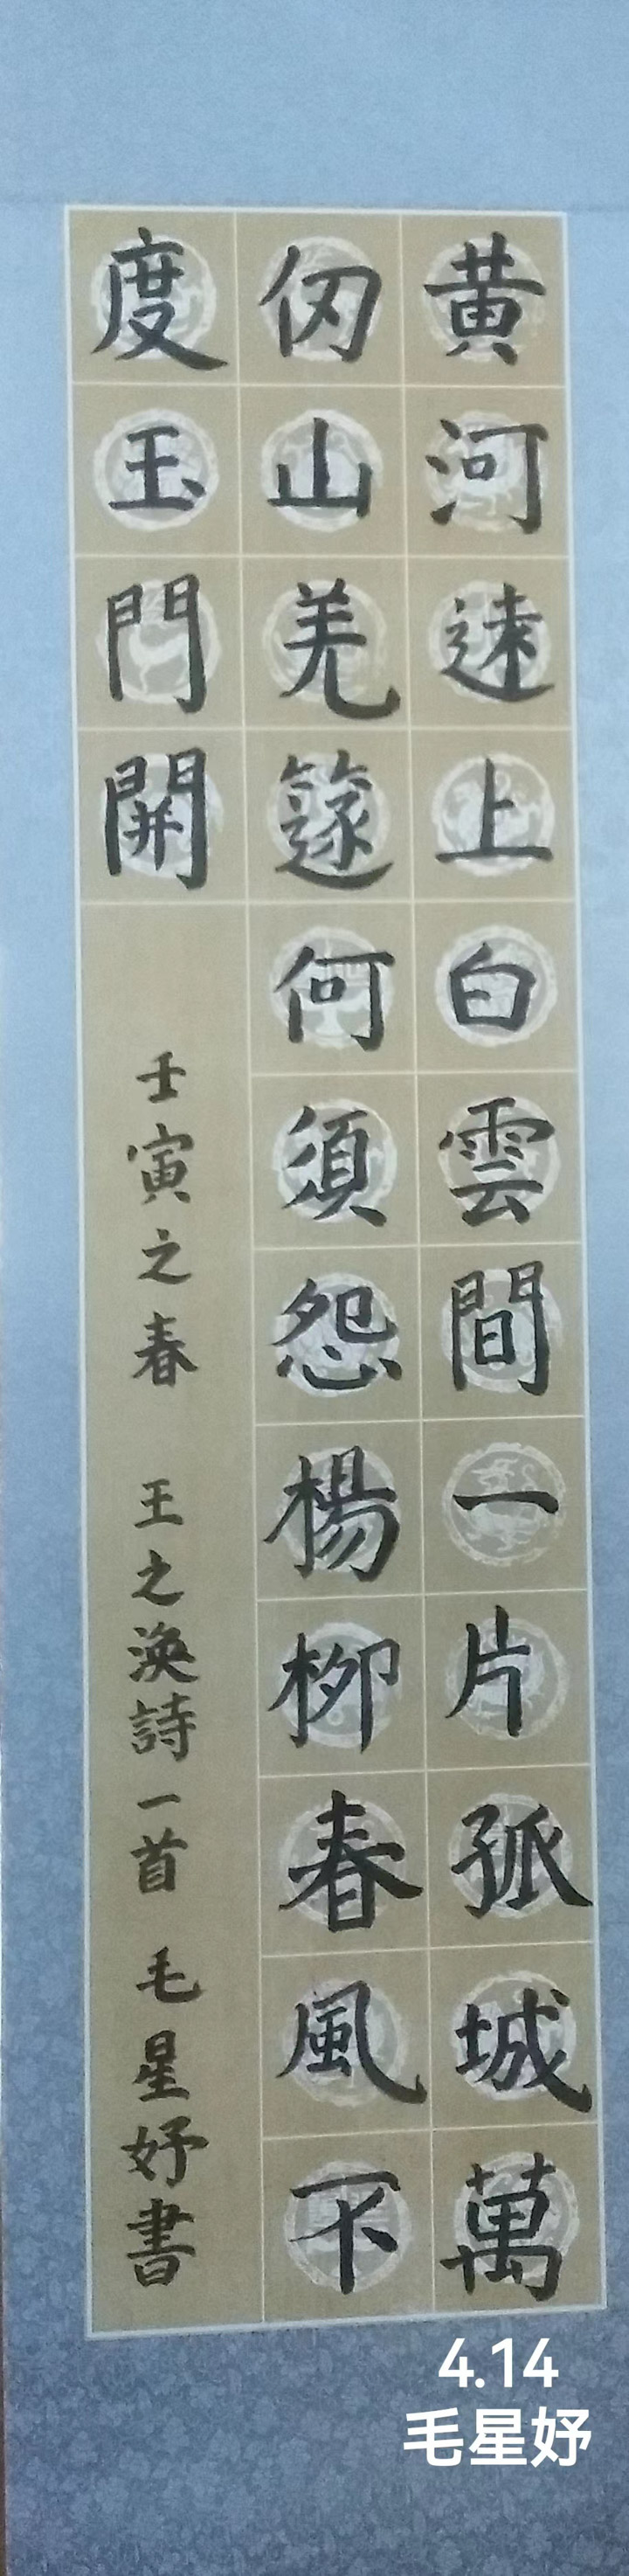 黄河遠上白雲間一片孤城萬
仞山羌篴何須怨楊柳春風不
度玉門開
壬寅之春 王之渙詩一首 毛星妤書
4.14
毛星妤